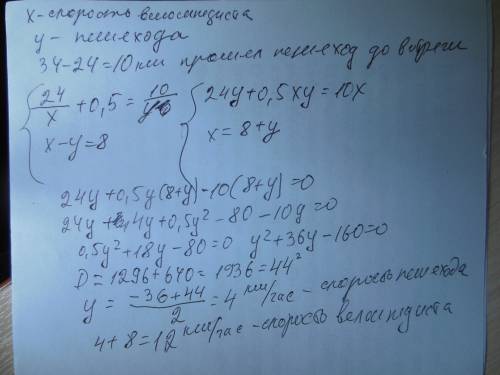 x - скорость велосипедиста
y - пешехода
34-24=10 км прошел пешеход до встречи
24/x + 0,5 = 10/y
x-y=8
24y+0,5xy=10x
x=8+y
24y+0,5y(8+y)-10(8+y)=0
24y+4y+0,5y²-80-10y=0
0,5y²+18y-80=0 y²+36y-160=0
D=1296+640=1936=44²
y = (-36+44)/2 = 4 км/час - скорость пешехода
4+8=12 км/час - скорость велосипедиста